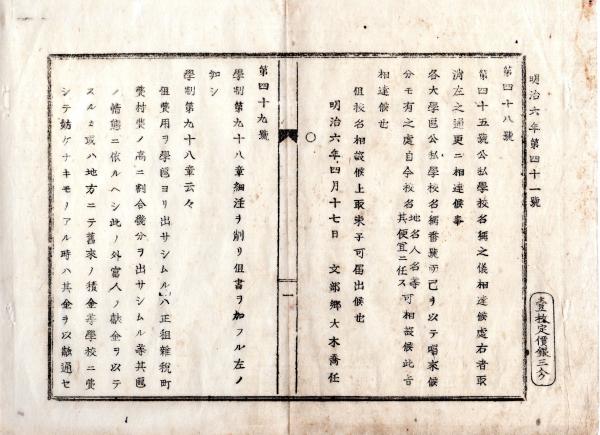 明治六年第四十一號
壹枚定價銀三分
第四十八號
第四十五號公私學校名稱之儀相達候處右者取
消左之通更ニ相達候事
各大學區公私學校名稱番號而己ヲ以テ唱來候
分モ有之處自今校名地名人名等其便宜ニ任ス可相設候此旨
相達候也
但校名相設候上取束子可届出候也
明治六年四月十七日 文部卿大木喬任
〇
一
第四十九號
學制第九十八章細注ヲ削リ但書ヲ加フル左ノ
如シ
學制第九十八章云々
但費用ヲ學區ヨリ出サシムル八正租雜税町
費村費ノ高ニ割合幾分ヲ出サシムル等其區
ノ情態ニ依ルヘシ此ノ外富人ノ獻金ヲ以テ
スルカ或ハ地方ニテ舊來ノ積金等學校ニ費
シテ妨ケナキモノアル時ハ其金ヲ以融通セ